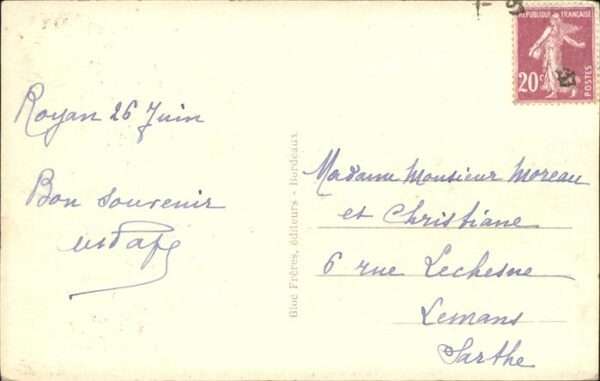 Royan 26 Juin
Bon souvenir
REPUBLIQUE FRANÇAISE
20c
POSTES
Bloc Frères, éditeurs - Bordeaux
Madame Monsieur Moreau
et Christiane
6 rue Lechesne
Lemans
Sarthe